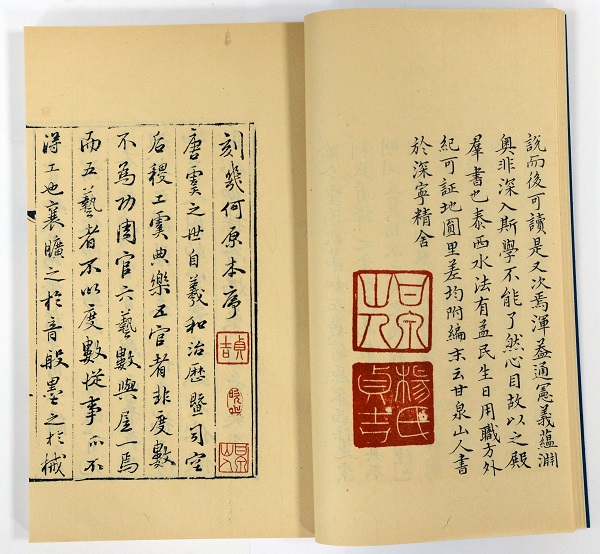 說而後可讀是又次焉渾葢通憲義蘊淵
奧非深入斯學不能了然心目故以之殿
羣書也泰西水法有益民生日用職方外
紀可証地圓里差均附編末云甘泉山人書
於深寧精舍
甘泉山人
楊氏貞吉
刻幾何原本序
貞吉
唐虞之世自羲和治歷暨司空
后稷工虞典樂五官者非度數
不為功周官六藝數與居一焉
而五藝者不以度數從事亦不
得工也襄曠之於音般墨之於械